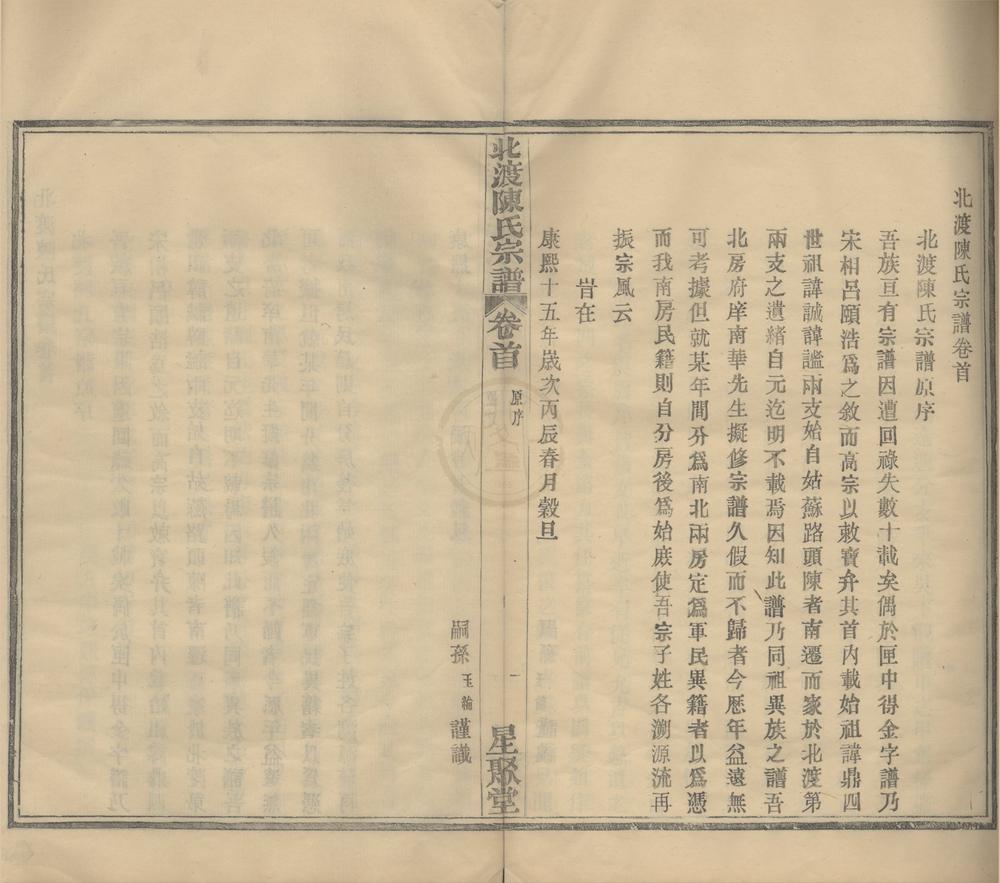 北渡陳氏宗譜卷首
北渡陳氏宗譜原序
吾族亘有宗譜因遭回祿失數十載矣偶於匣中得金字譜乃
宋相呂頤浩爲之敘而高宗以敕寶弁其首內載始祖諱鼎四
世祖諱誠諱謐兩支始自姑蘇路頭陳者南遷而家於北渡第
兩支之遺緒自元迄明不載焉因知此譜乃同祖異族之譜吾
北房府庠南華先生擬修宗譜久假而不歸者今厯年益遠無
可考據但就某年間分爲南北兩房定爲軍民異籍者以爲憑
而我南房民籍則自分房後爲始庻使吾宗子姓各溯源流再
振宗風云
旹在
康熙十五年歲次丙辰春月穀旦
北渡陳氏宗譜 卷首 原序 一 星聚堂
嗣孫玉綸謹識